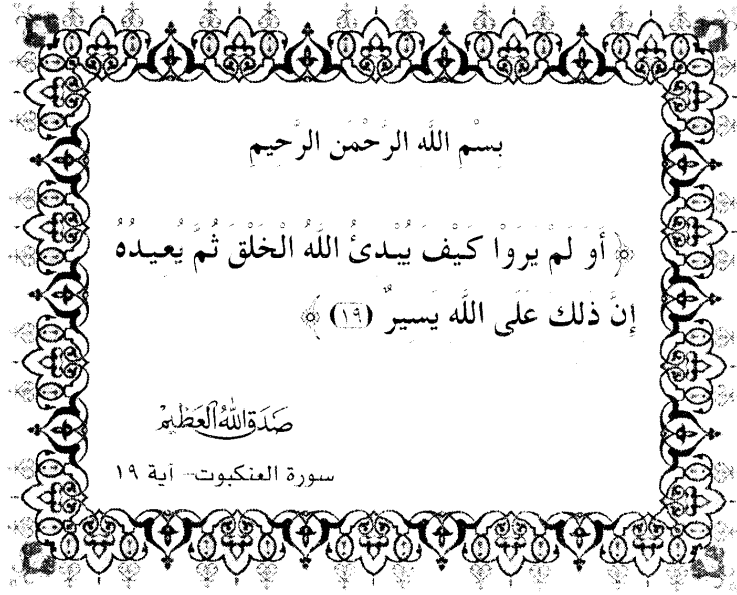 بِسْمِ اللَّهِ الرَّحْمَنِ الرَّحِيمِ
﴿ أَوَ لَمْ يَرَوْا كَيْفَ يُبْدِئُ اللَّهُ الْخَلْقَ ثُمَّ يُعِيدُهُ
إِنَّ ذَلِكَ عَلَى اللَّهِ يَسِيرٌ (١٩) ﴾
صَدَقَ اللَّهُ الْعَظِيمُ
سورة العنكبوت– آية ١٩